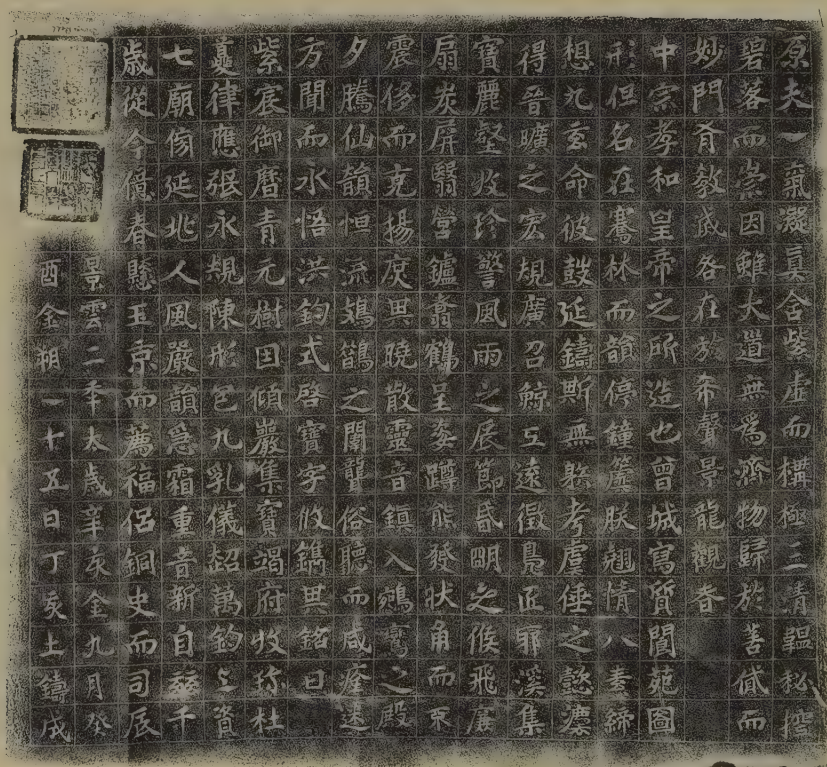 原夫一氣凝真含紫虛而構極三清韞秘控
碧落而崇因雖大道無為濟物歸於善貸而
妙門有教咸各在於希聲景龍觀者
中宗孝和皇帝之所造也曾城寫質閬苑圖
形但名在騫林而韻停鐘簴朕翹情八素締
想九玄命彼鼓延鑄斯無斁考虞倕之懿法
得晉曠之宏規廣召鯨工遠徵鳧匠耶溪集
寶麗壑收珍警風雨之辰節昏明之候飛廉
扇炭屏翳營鑪翥鶴呈姿蹲熊發狀角而不
震侈而克揚庶其曉散靈音鎮入鵷鸞之殿
夕騰仙韻恒流鳷鵲之闈聾俗聽而咸痊迷
方聞而永悟洪鈞式啓寶字攸鐫其銘曰
紫宸御曆青元樹因傾巖集寶竭府收珎杜
夔律應張永規陳形包九乳儀超萬鈞上資
七廟傍延兆人風嚴韻急霜重音新自茲千
歲從今億春懸玉京而薦福侶銅史而司辰
景雲二年太歲辛亥金九月癸
酉金朔一十五日丁亥土鑄成